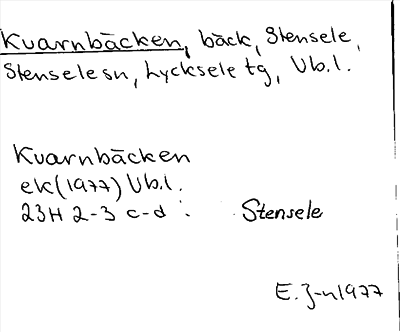 Kvarnbäcken, bäck, Stensele,
Stensele sn, Lycksele tg, Vb.l.
Kvarnbäcken
ek (1977) Vb.l.
23H 2-3 c-d : Stensele
E. J-n 1977